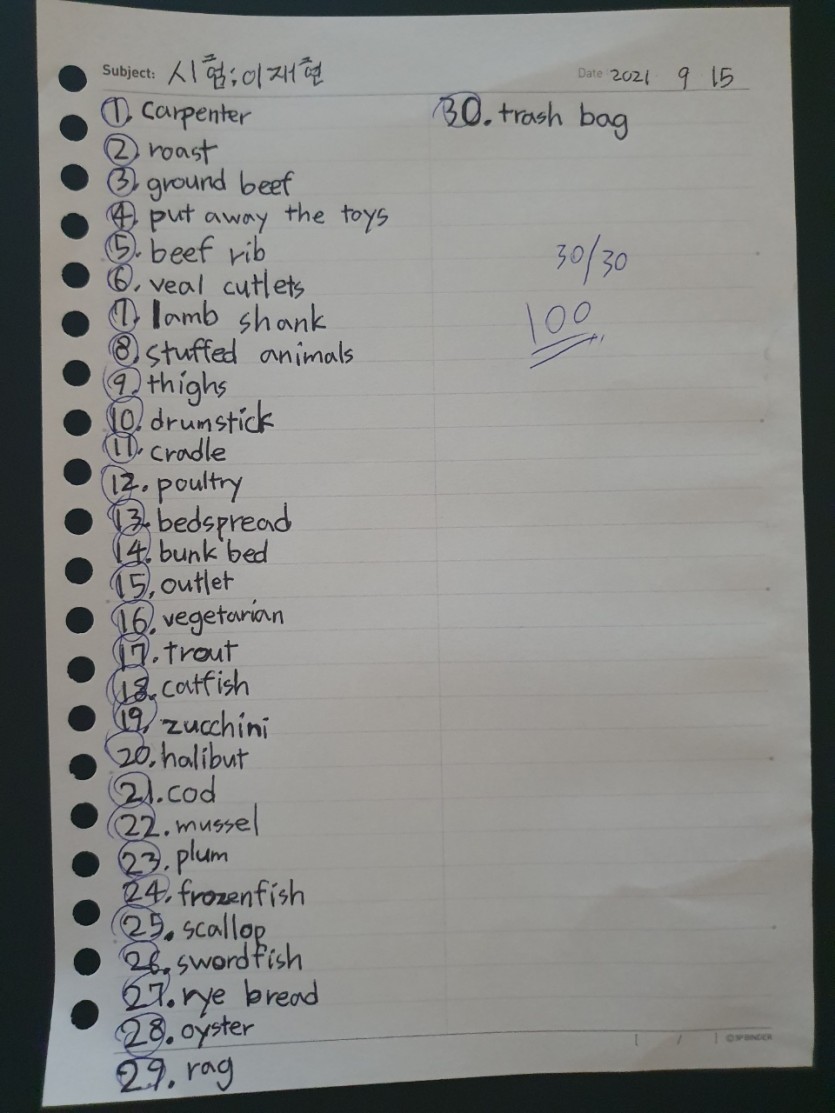 Subject: 시험:이재현
Date 2021 9 15
1. Carpenter
2. roast
3. ground beef
4. put away the toys
5. beef rib
6. veal cutlets
7. lamb shank
8. stuffed animals
9. thighs
10. drumstick
11. cradle
12. poultry
13. bedspread
14. bunk bed
15. outlet
16. vegetarian
17. trout
18. catfish
19. zucchini
20. halibut
21. cod
22. mussel
23. plum
24. frozenfish
25. scallop
26. swordfish
27. rye bread
28. oyster
29. rag
30. trash bag
30/30
100
[ / ]